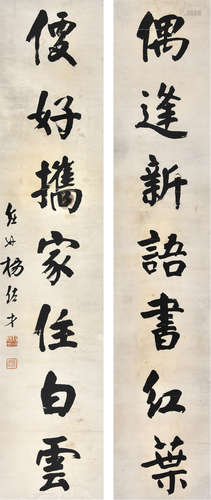 偶逢新語書紅葉
便好攜家住白雲
楊